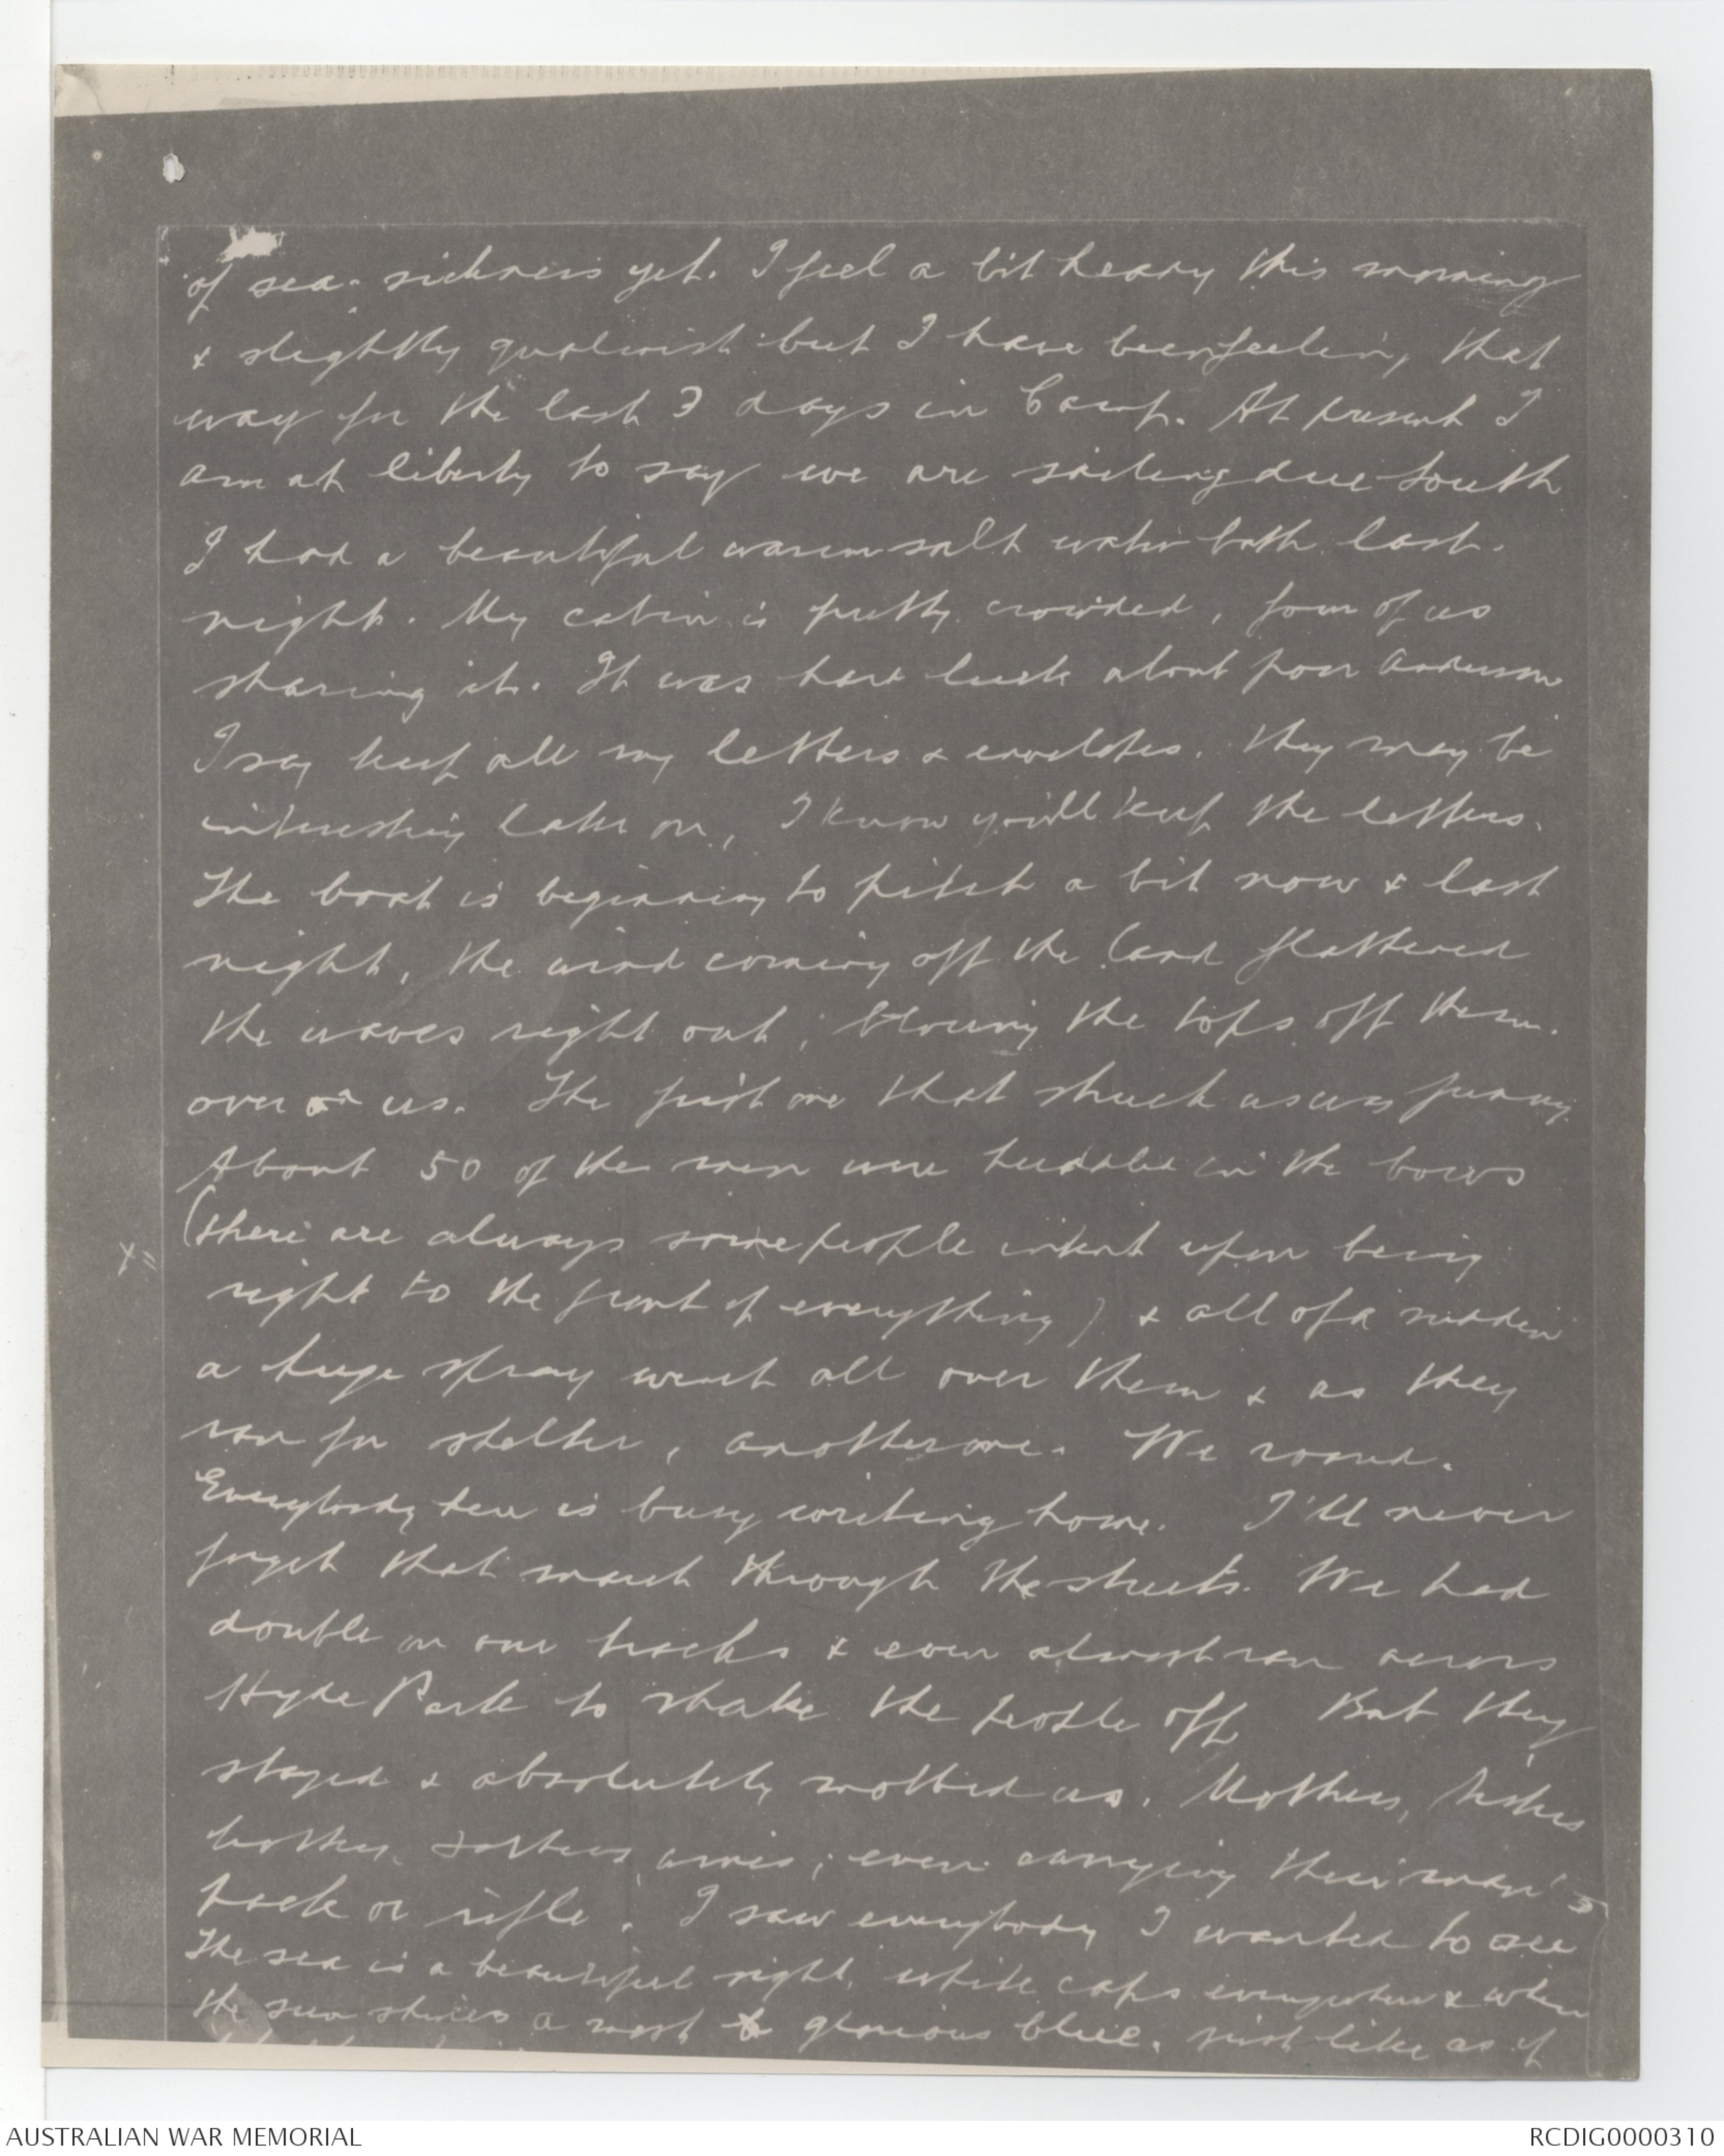 of sea-sickness yet. I feel a bit heady this morning
& slightly qualmish but I have been feeling that
way for the last 3 days in Camp. At present I
am at liberty to say we are sailing due South
I had a beautiful warm salt water bath last
night. My cabin is pretty crowded, four of us
sharing it. It was hard luck about poor Anderson
I say keep all my letters & envelopes. They may be
interesting later on, I know you'll keep the letters.
The boat is beginning to pitch a bit now & last
night, the wind coming off the land flattened
the waves right out, blowing the tops off them.
over us. The first one that struck us was funny.
About 50 of the men were huddled in the bows
(there are always some people intent upon being
right to the front of everything) & all of a sudden
a huge spray went all over them & as they
ran for shelter, another one. We roared.
Everybody here is busy writing home. I'll never
forget that march through the streets. We had
double on our tracks & even almost ran across
Hyde Park to shake the people off But they
stayed & absolutely mobbed us. Mothers, sisters
brothers, wives; even carrying their man's
pack or rifle. I saw everybody I wanted to see
The sea is a beautiful sight, white caps everywhere & when
the sun shines a most glorious blue. just like as if
AUSTRALIAN WAR MEMORIAL
RCDIG0000310